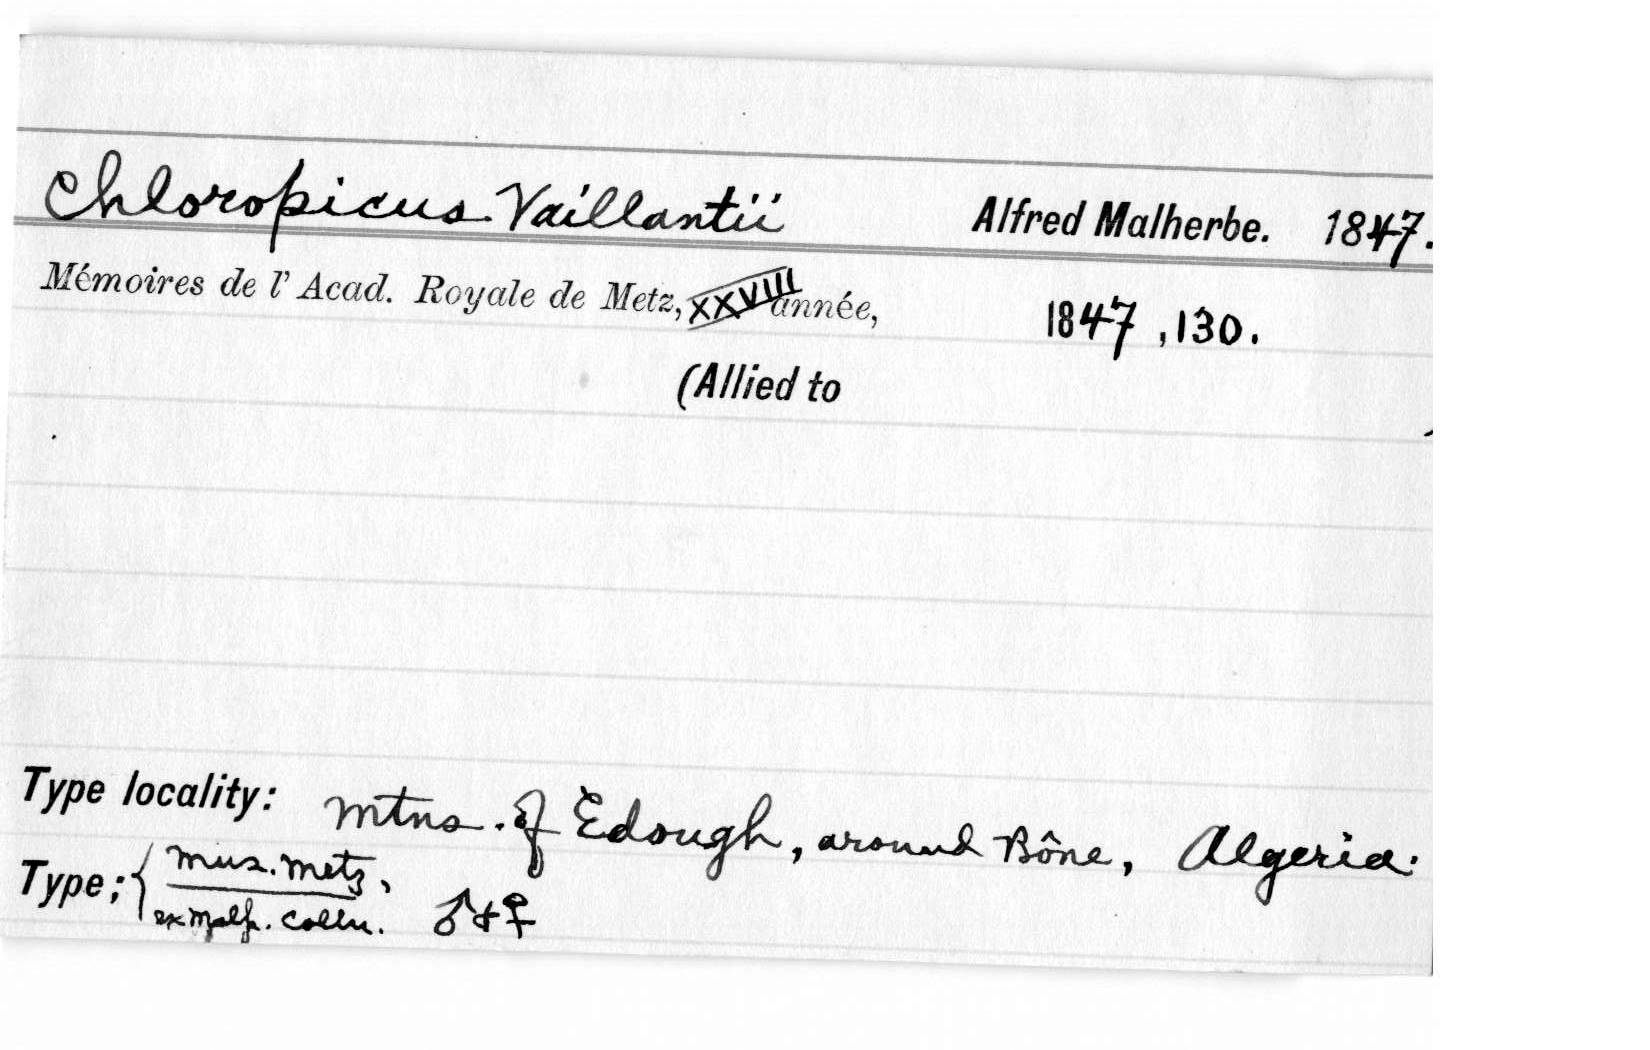 Chloropicus Vaillantii Alfred Malherbe. 1847.
Mémoires de l' Acad. Royale de Metz, XXVIII année, 1847, 130.
(Allied to )
Type locality: Mtns. of Edough, around Bône, Algeria.
Type: { Mus. Metz,
ex Malh. Colln. ♂ & ♀